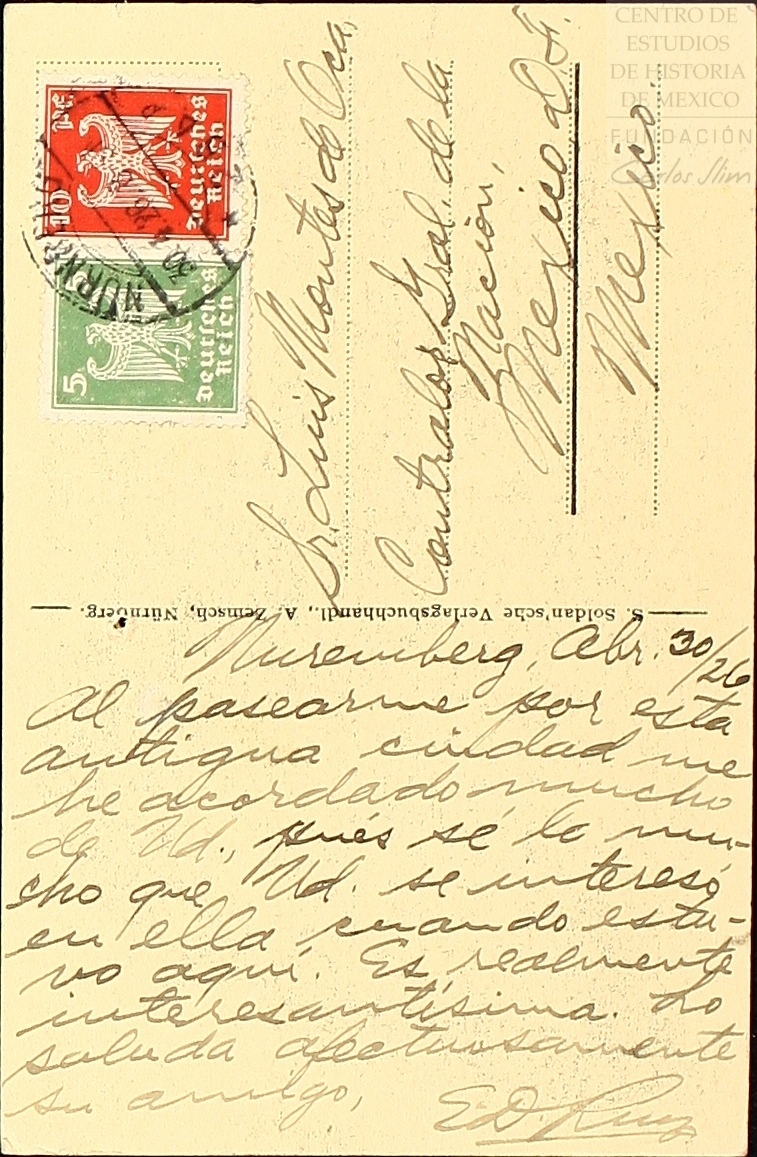 CENTRO DE
ESTUDIOS
DE HISTORIA
DE MEXICO
FUNDACIÓN
Carlos Slim
10 Pf.
Deutsches
Reich
NÜRNBERG
30.4.26
5
Deutsches
Reich
Sr. Luis Montes de Oca,
Contralor Gral. de la
Nación,
Mexico D.F.
Mexico.
S. Soldan'sche Verlagsbuchhandl., A. Zemsch, Nürnberg.
Nuremberg, Abr. 30/26
Al pasearme por esta
antigua ciudad me
he acordado mucho
de Ud., pués sé lo mu-
cho que Ud. se interesó
en ella cuando estu-
vo aquí. Es realmente
interesantísima. Lo
saluda afectuosamente
su amigo,
E.D. Ruiz